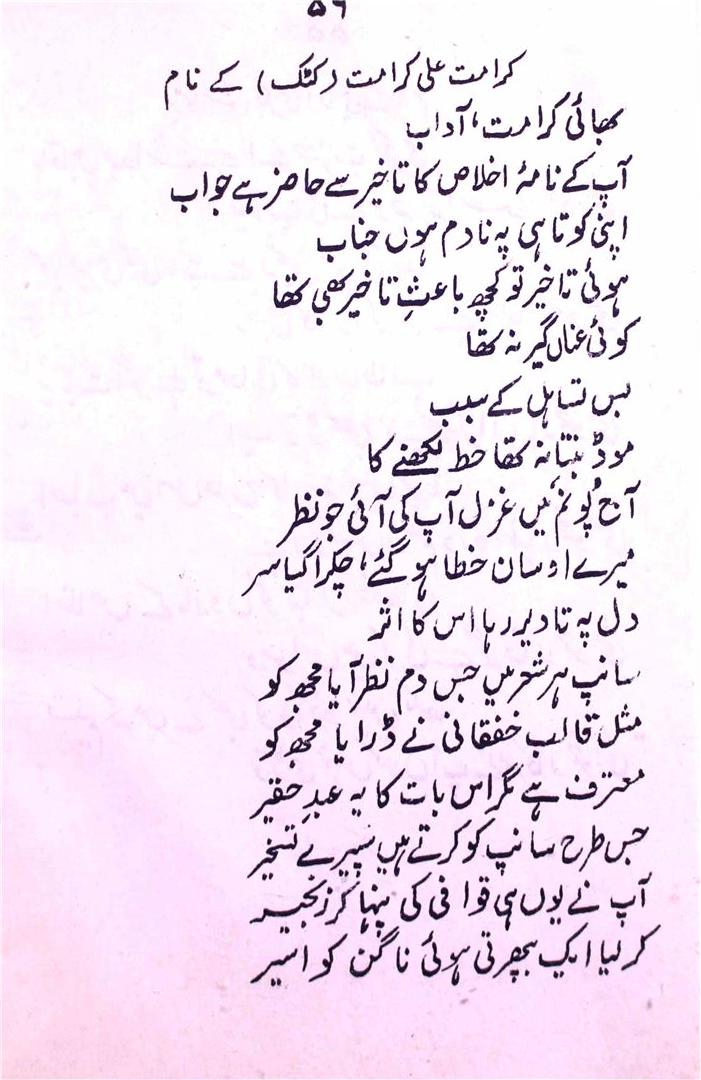 ۵۶
کرامت علی کرامت (کٹک) کے نام
بھائی کرامت، آداب
آپ کے نامۂ اخلاص کا تاخیر سے حاضر ہے جواب
اپنی کوتاہی پہ نادم ہوں جناب
ہوئی تاخیر تو کچھ باعثِ تاخیر بھی تھا
کوئی عناں گیر نہ تھا
بس تساہل کے سبب
موڈ بنتا نہ تھا خط لکھنے کا
آج 'پونم' میں غزل آپ کی آئی جو نظر
میرے اوسان خطا ہو گئے، چکرا گیا سر
دل پہ تا دیر رہا اس کا اثر
سانپ ہر شعر میں جس دم نظر آیا مجھ کو
مثل قالب خفقانی نے ڈرایا مجھ کو
معترف ہے مگر اس بات کا یہ عبدِ حقیر
جس طرح سانپ کو کرتے ہیں سپیرے تسخیر
آپ نے یوں ہی قوافی کی پنہا کر زنجیر
کر لیا ایک بپھرتی ہوئی ناگن کو اسیر